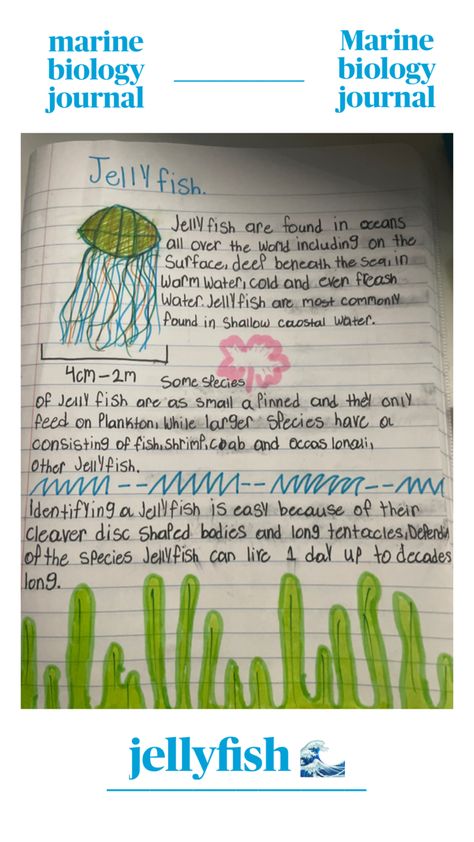 marine
biology
journal
Marine
biology
journal
Jellyfish.
Jellyfish are found in oceans
all over the world including on the
Surface, deep beneath the sea, in
warm water, cold and even freash
water. Jellyfish are most commonly
found in shallow caostal water.
4cm-2m
Some species
of Jelly fish are as small a Pinned and they only
feed on Plankton, while larger species have a
consisting of fish, shrimp, crab and
other Jellyfish.
Identifying a Jellyfish is easy because of their
cleaver disc shaped bodies and long tentacles,
of the species Jellyfish can live 1 day up to decades
long.
jellyfish